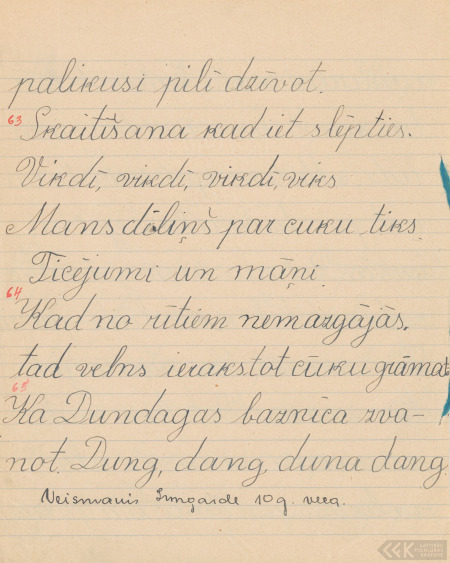 palikusi pilī dzīvot.
63 Skaitīšana kad iet slēpties.
Vikdī, vikdī, vikdī, viks
Mans dēliņš par cuku tiks.
Ticējumi un māņi.
64 Kad no rītiem nemazgājās.
tad velns ierakstot cūku grāmat
65
Ka Dundagas baznīca zva-
not. Dung, dang, duna dang.
Irmgarde 10 g. veca.